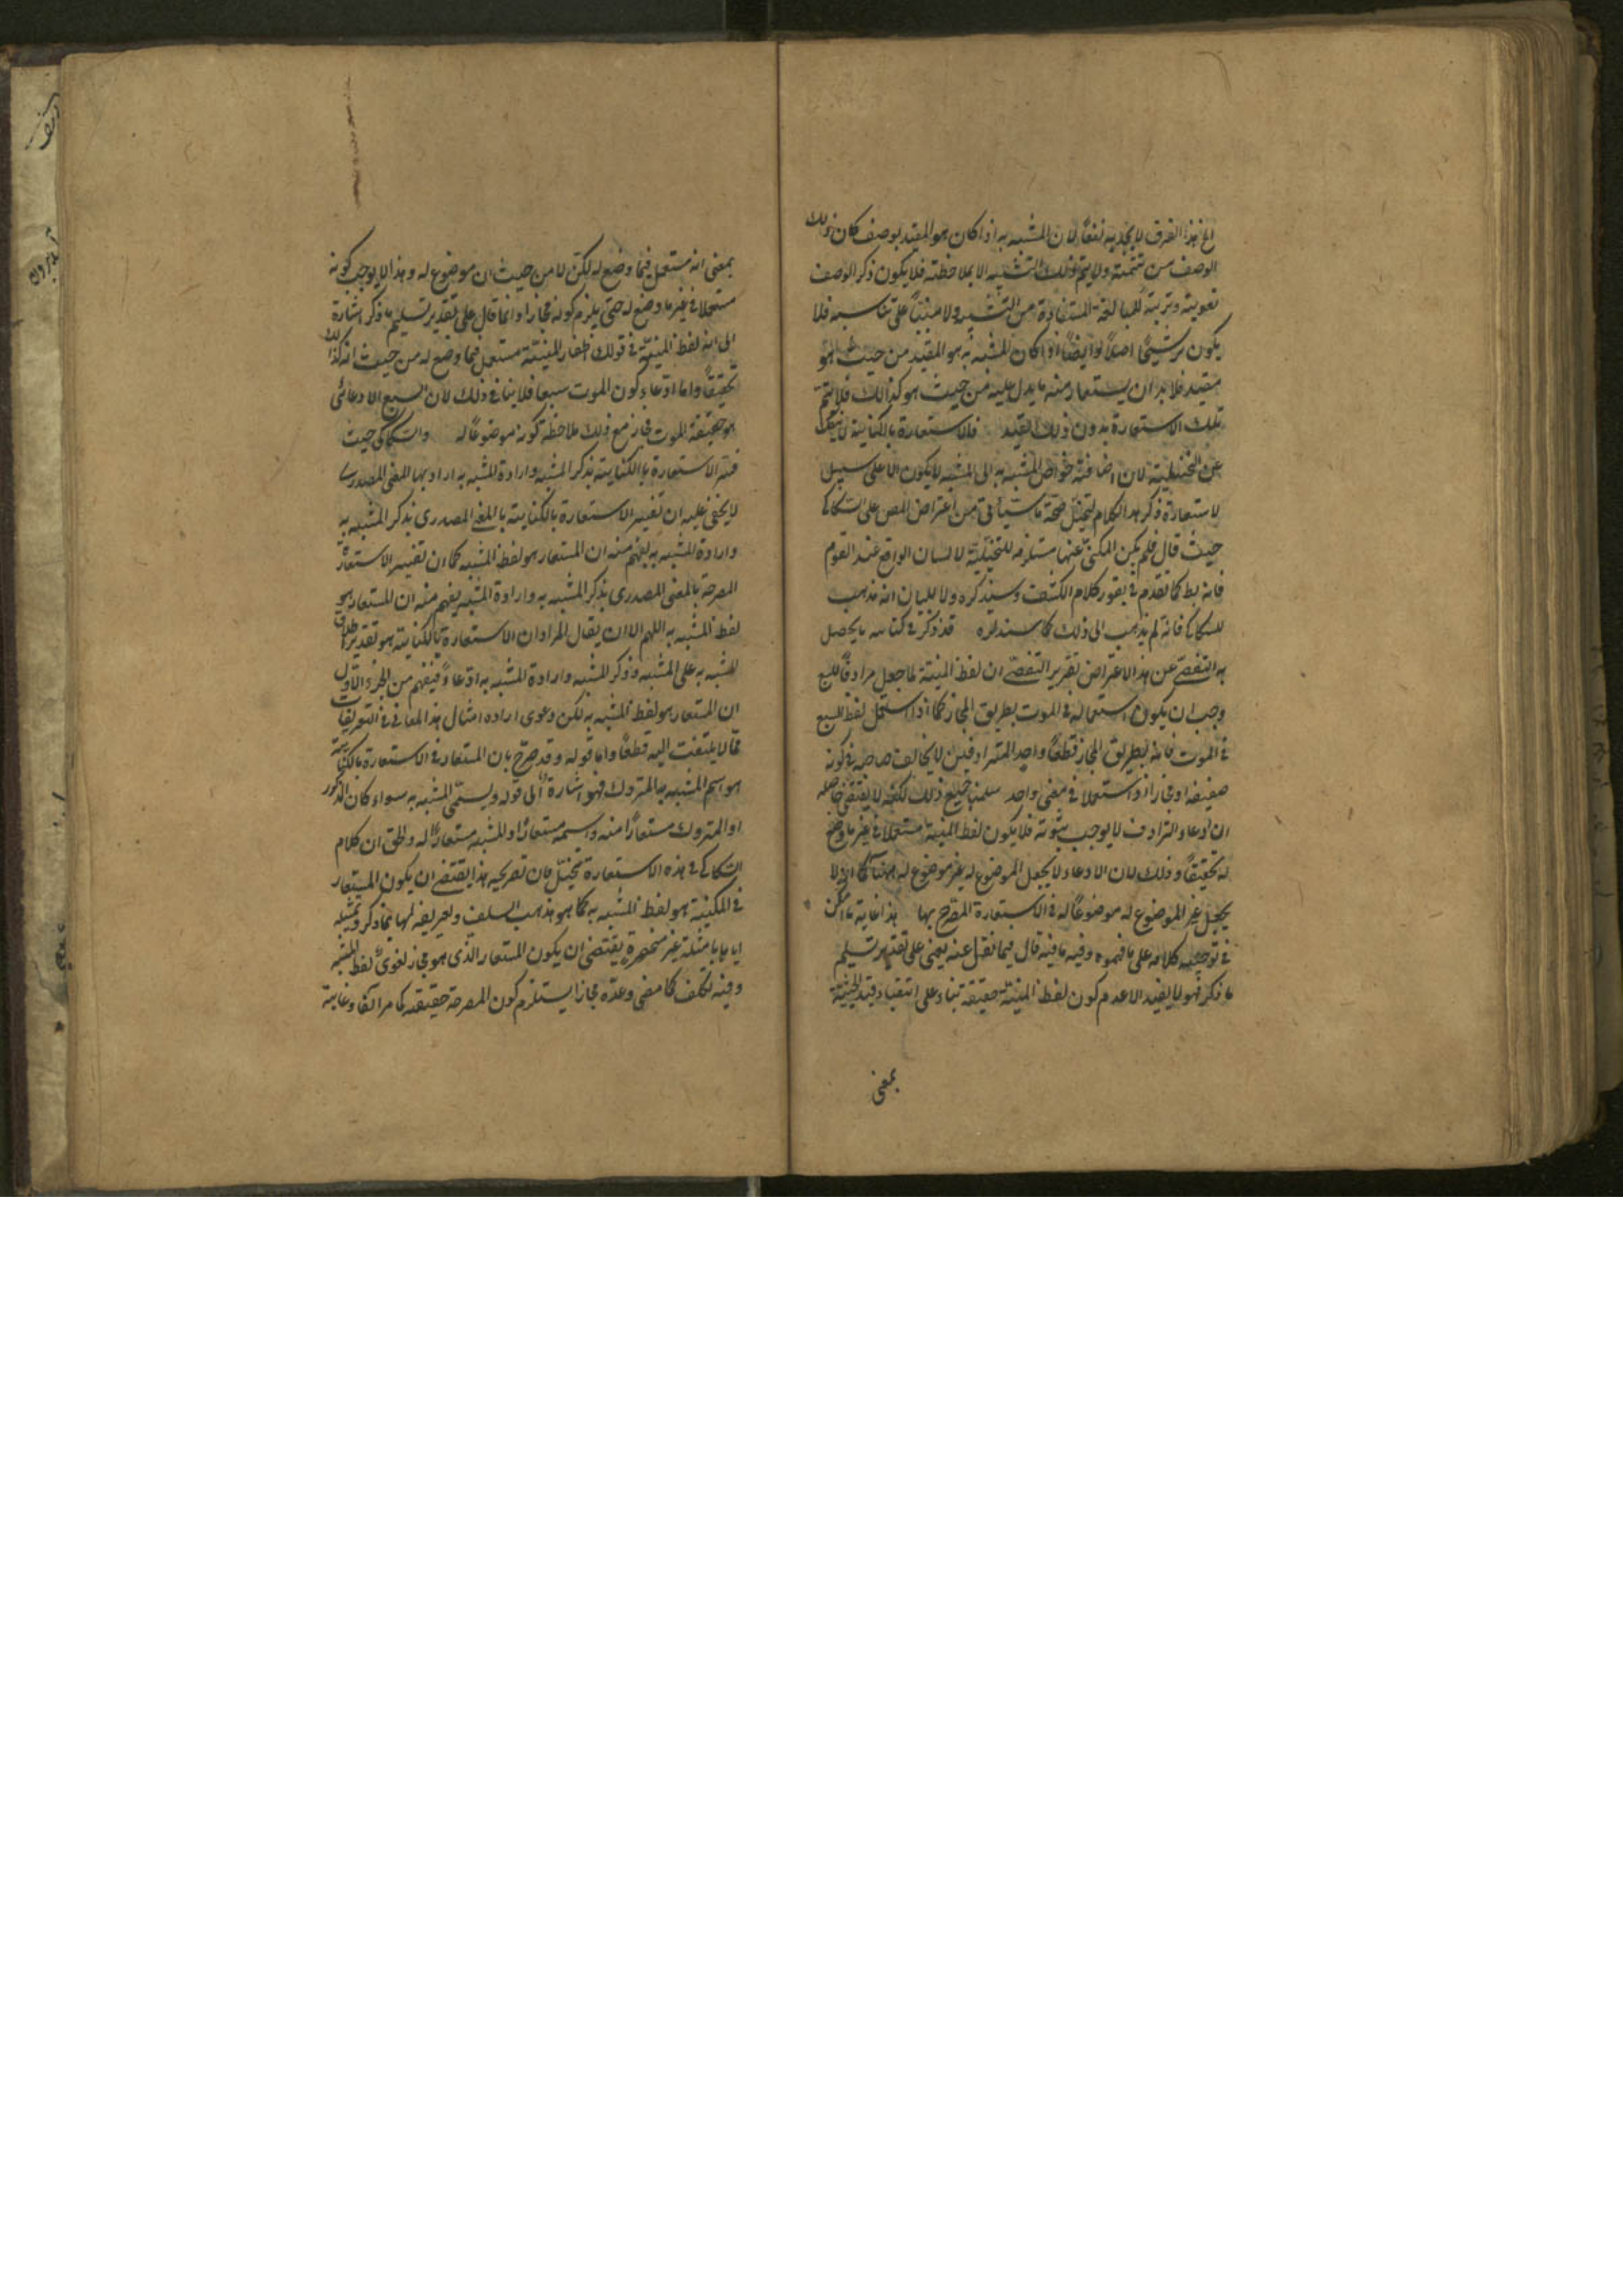 الخ هذا الفرق لا يجديه نفعًا لان المشبه به اذا كان هو المقيد بوصف كان ذلك
الوصف من تتمته ولا يتم ذلك التشبيه الا بملاحظته فلا يكون ذكر الوصف
تقوية وتربية للمبالغة المستفادة من التشبيه ولا مبنيًا على تناسيه فلا
يكون ترشيحًا اصلاً وايضًا اذا كان المشبه به هو المقيد من حيث هو
مقيد فلا بد ان يستعار منه ما يدل عليه من حيث هو كذلك فلا يتم
تلك الاستعارة بدون ذلك القيد فالاستعارة بالكناية لا ينفك
عن التخييلية لان اضافة خواص المشبه به الى المشبه لا يكون الا على سبيل
الاستعارة ذكر هذا الكلام صحة ما سيأتي من اعتراض المص على السكاكي
حيث قال فلم يكن المكنى عنها مستلزمة للتخييلية لا لبيان الواقع عند القوم
فانه كما تقدم في كلام الكشف وسيذكره ولا لبيان انه مذهب
السكاكي فانه لم يذهب الى ذلك كما قد ذكر في كتابه ما يحصل
به التفصي عن هذا الاعتراض تقرير التفصي ان لفظ المنية لما جعل مرادفًا للسبع
وجب ان يكون استعماله في الموت بطريق المجاز كما اذا استعمل لفظ السبع
في الموت فانه بطريق المجاز قطعًا واحد المترادفين لا يخالف صاحبه في كونه
حقيقة او مجازا اذا استعملا في معنى واحد سلمنا جميع ذلك لكنه لا يقتضي حاصله
ان ادعاء الترادف لا يوجب ثبوته فلا يكون لفظ المنية مستعملا في غير ما وضع
له تحقيقًا وذلك لان الادعاء لا يجعل الموضوع له غير موضوع له ههنا كما انه لا
يجعل غير الموضوع له موضوعًا له في الاستعارة المصرح بها هذا غاية ما امكن
في توجيه كلامه على ما فهموه وفيه ما فيه قال فيما نقل عنه يعني على تقدير تسليم
ما ذكر فهو لا يفيد الا عدم كون لفظ المنية حقيقة بناء على انتفاء قيد الحيثية
بمعنى
بمعنى انه مستعمل فيما وضع له لكن لا من حيث ان موضوع له وهذا لا يوجب كونه
مستعملا في غير ما وضع له حتى يلزم كونه مجازا وانما قال على تقدير تسليم ما ذكر اشارة
الى ان لفظ المنية في قولك اظفار المنية مستعمل فيما وضع له من حيث انه كذلك
تحقيقًا واما ادعاء كون الموت سبعا فلا ينافي ذلك لان السبع الادعائي
هو حقيقة الموت فجاز مع ذلك ملاحظة كونه موضوعًا له والسكاكي حيث
فسر الاستعارة بالكناية بذكر المشبه وارادة المشبه به اراد بها المعنى المصدري
لا يخفى عليه ان تفسير الاستعارة بالكناية بالمعنى المصدري بذكر المشبه به
وارادة المشبه به يفهم منه ان المستعار هو لفظ المشبه كما ان تفسير الاستعارة
المصرحة بالمعنى المصدري بذكر المشبه به وارادة المشبه يفهم منه ان المستعار هو
لفظ المشبه به اللهم الا ان يقال المراد ان الاستعارة بالكناية هو تقدير اطلاق
المشبه به على المشبه وذكر المشبه وارادة المشبه به ادعاءً فيفهم من الجزء الاول
ان المستعار هو لفظ المشبه به لكن دعوى ارادة امثال هذا المعاني في التعريفات
مما لا يلتفت اليه قطعًا واما قوله وقد صرح بان المستعار في الاستعارة بالكناية
هو اسم المشبه به المتروك فهو اشارة الى قوله ويسمى المشبه به سواء كان المذكور
او المتروك مستعارًا منه واسمه مستعارًا والمشبه مستعارًا له والحق ان كلام
السكاكي في هذه الاستعارة فان تصريحه هذا يقتضي ان يكون المستعار
في المكنية هو لفظ المشبه به كما هو مذهب السلف وتعريفه لها بما ذكر وتمثيله
اياها بامثلة غير منحصرة يقتضي ان يكون المستعار الذي هو مجاز لغوي لفظ المشبه
وفيه تكلف كما مضى وعدّه مجازا يستلزم كون المصرحة حقيقة كما مر آنفا وغاية